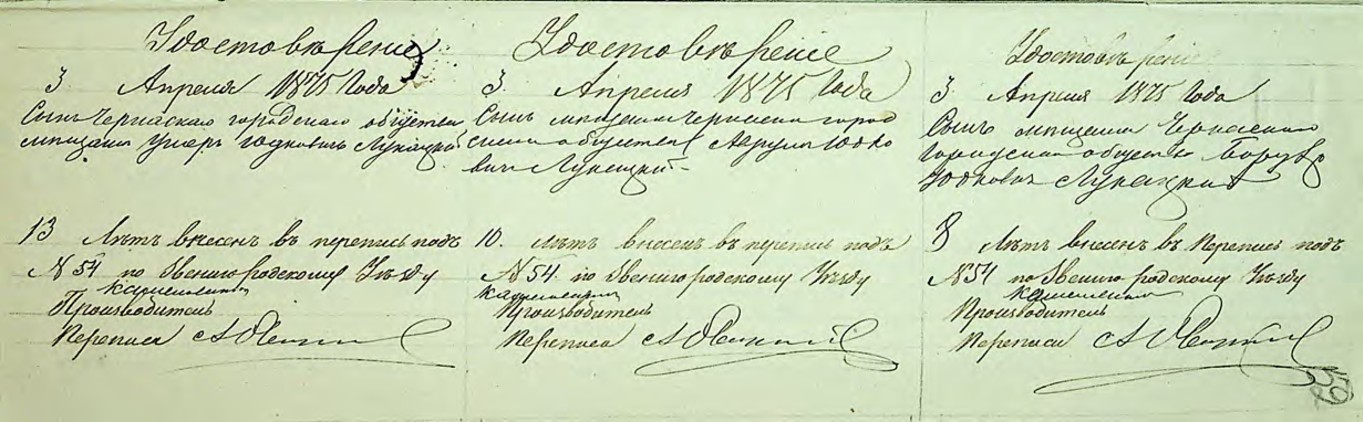 Удостовѣрение
3 Апреля 1875 Года
Сынъ Черкаскаго городскаго общества
мищанина Юдковичъ Лукацкий
13 Лѣтъ внесенъ въ перепись подъ
№ 54 по Звенигородскому Уѣзду
Производитель
Переписи
Удостовѣрение
3. Апреля 1875 Года
Сынъ мищанина Черкаскаго город
скаго общества Юдко
вичъ Лукацкий
10. Лѣтъ внесенъ въ перепись подъ
№ 54. по Звенигородскому Уѣзду
Производитель
Переписи
Удостовѣрение
3 Апреля 1875 Года
Сынъ мищанина Черкаскаго
Городскаго общества Борухъ
Юдковичъ Лукацкий
8 Лѣтъ внесенъ въ Перепись подъ
№ 54 по Звенигородскому Уѣзду
Производитель
Переписи